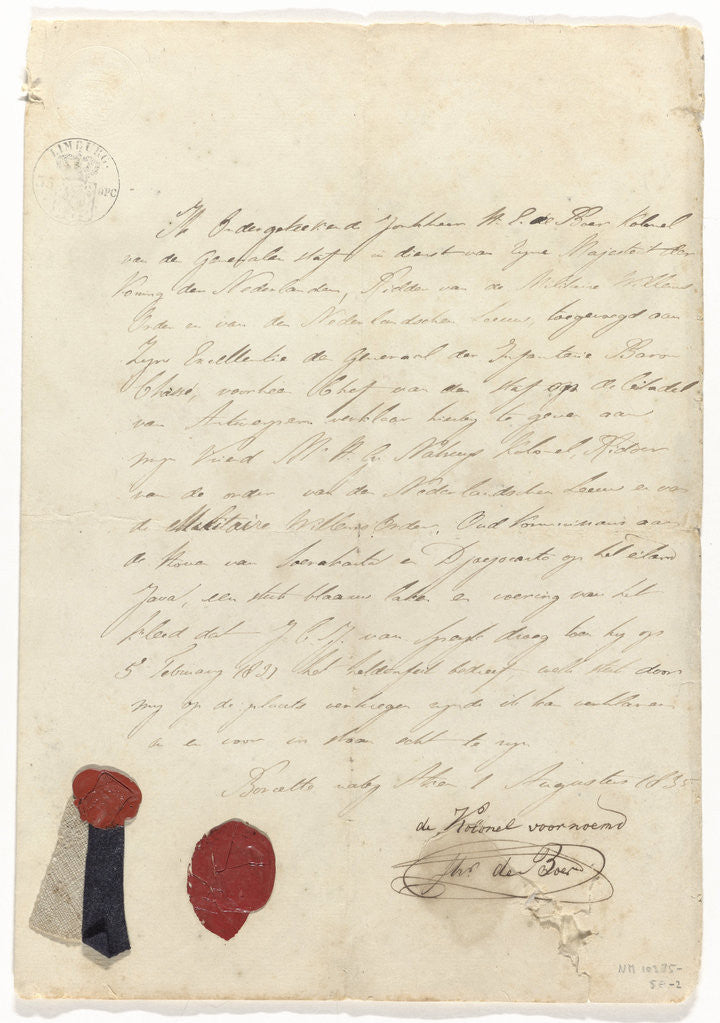 LIMBURG.
Ik Ondergetekende Jonkheer de Boer Kolonel
van de Generalen staf in dienst van Zyne Majesteit der
Koning der Nederlanden, Ridder van de Militaire Willems
Orden en van de Nederlandschen Leeuw, toegevoegd aan
Zyne Excellentie den Generaal der Infanterie Baron
Chassé, voorheen Chef van den staf op de Citadel
van Antwerpen verklaar hierby te geven aan
myn Vriend Mr H. G. Nahuys Kolonel, Ridder
van de orden van den Nederlandschen Leeuw en van
de Militaire Willems Orden, Oud Kommissaris aan
de Hoven van Soerakarta en Djocjocarta op het eiland
Java, een stuk blaauw laken en voering van het
kleed dat J. C. J. van Speyk droeg toen hy op
5 February 1831 het heldenfeit bedreef welk stuk door
my op de plaats verkregen zynde ik kan verklaren
en er voor in staan echt te zyn
1 Augustus 1835
de Kolonel voornoemd
Jhr de Boer
NM 10285-
5E-2